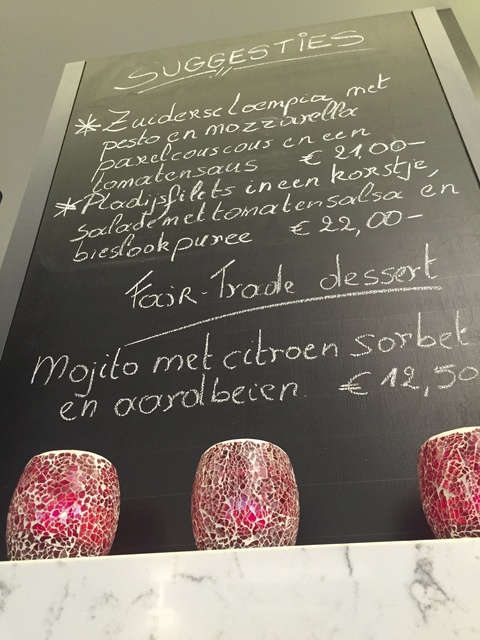 SUGGESTIES
* Zuiderse loempia met
pesto en mozzarella
parelcouscous en een
tomatensaus € 21,00-
* Pladijsfilets in een korstje,
salade met tomatensalsa en
bieslookpuree € 22,00-
Fair-Trade dessert
Mojito met citroen sorbet
en aardbeien. € 12,50